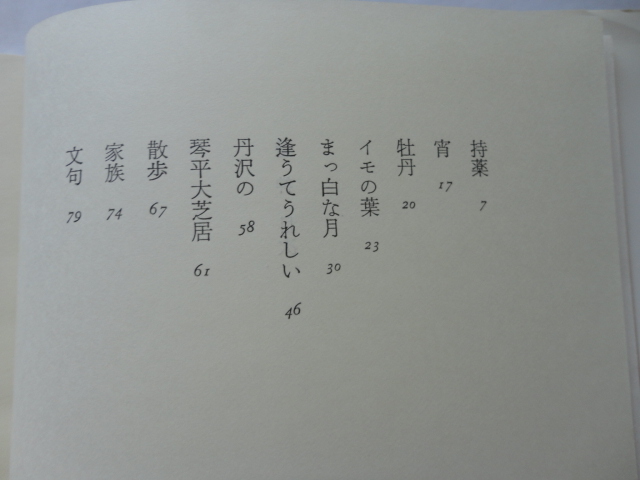 持薬 7
宵 17
牡丹 20
イモの葉 23
まっ白な月 30
逢うてうれしい 46
丹沢の 58
琴平大芝居 61
散歩 67
家族 74
文句 79